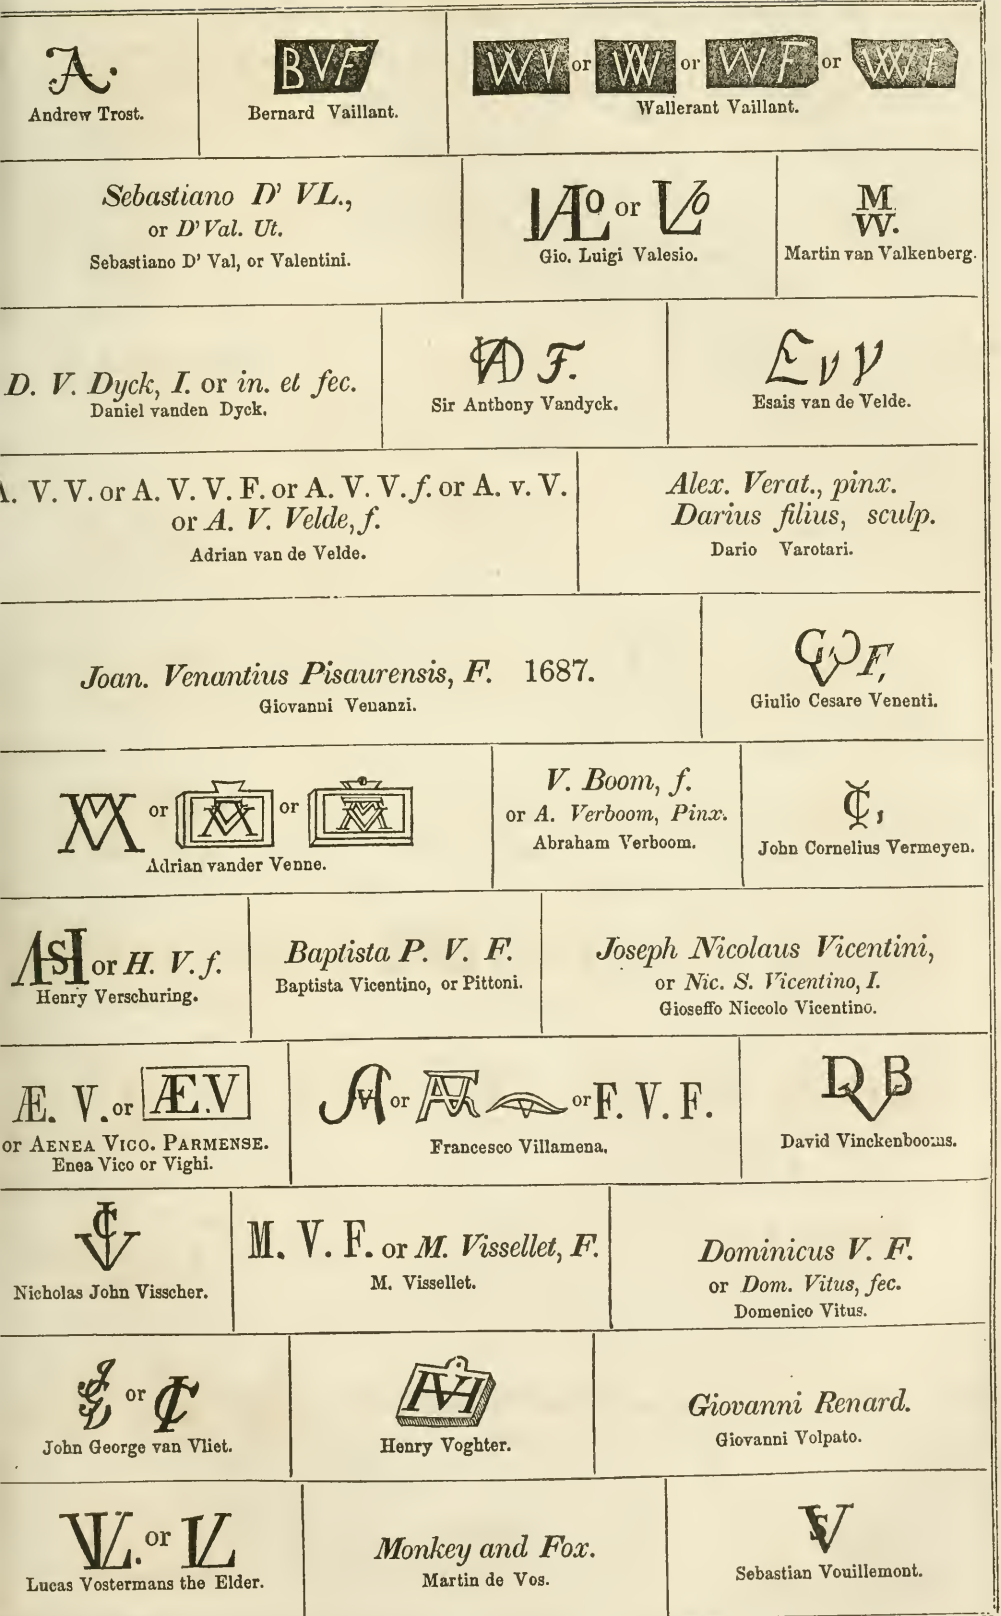 A.
Andrew Trost.
BVF
Bernard Vaillant.
WV or VW or WF or WF
Wallerant Vaillant.
Sebastiano D' VL.,
or D' Val. Ut.
Sebastiano D' Val, or Valentini.
or
Gio. Luigi Valesio.
M
VV.
Martin van Valkenberg.
D. V. Dyck, I. or in. et fec.
Daniel vanden Dyck.
F.
Sir Anthony Vandyck.
E v V
Esais van de Velde.
A. V. V. or A. V. V. F. or A. V. V. f. or A. v. V.
or A. V. Velde, f.
Adrian van de Velde.
Alex. Verat., pinx.
Darius filius, sculp.
Dario Varotari.
Joan. Venantius Pisaurensis, F. 1687.
Giovanni Venanzi.
F.
Giulio Cesare Venenti.
or or
Adrian vander Venne.
V. Boom, f.
or A. Verboom, Pinx.
Abraham Verboom.
John Cornelius Vermeyen.
or H. V. f.
Henry Verschuring.
Baptista P. V. F.
Baptista Vicentino, or Pittoni.
Joseph Nicolaus Vicentini,
or Nic. S. Vicentino, I.
Gioseffo Niccolo Vicentino.
Æ. V. or Æ.V
or AENEA VICO. PARMENSE.
Enea Vico or Vighi.
or or F. V. F.
Francesco Villamena.
D V B
David Vinckenbooms.
Nicholas John Visscher.
M. V. F. or M. Vissellet, F.
M. Vissellet.
Dominicus V. F.
or Dom. Vitus, fec.
Domenico Vitus.
or
John George van Vliet.
Henry Voghter.
Giovanni Renard.
Giovanni Volpato.
VL. or VL
Lucas Vostermans the Elder.
Monkey and Fox.
Martin de Vos.
SV
Sebastian Vouillemont.